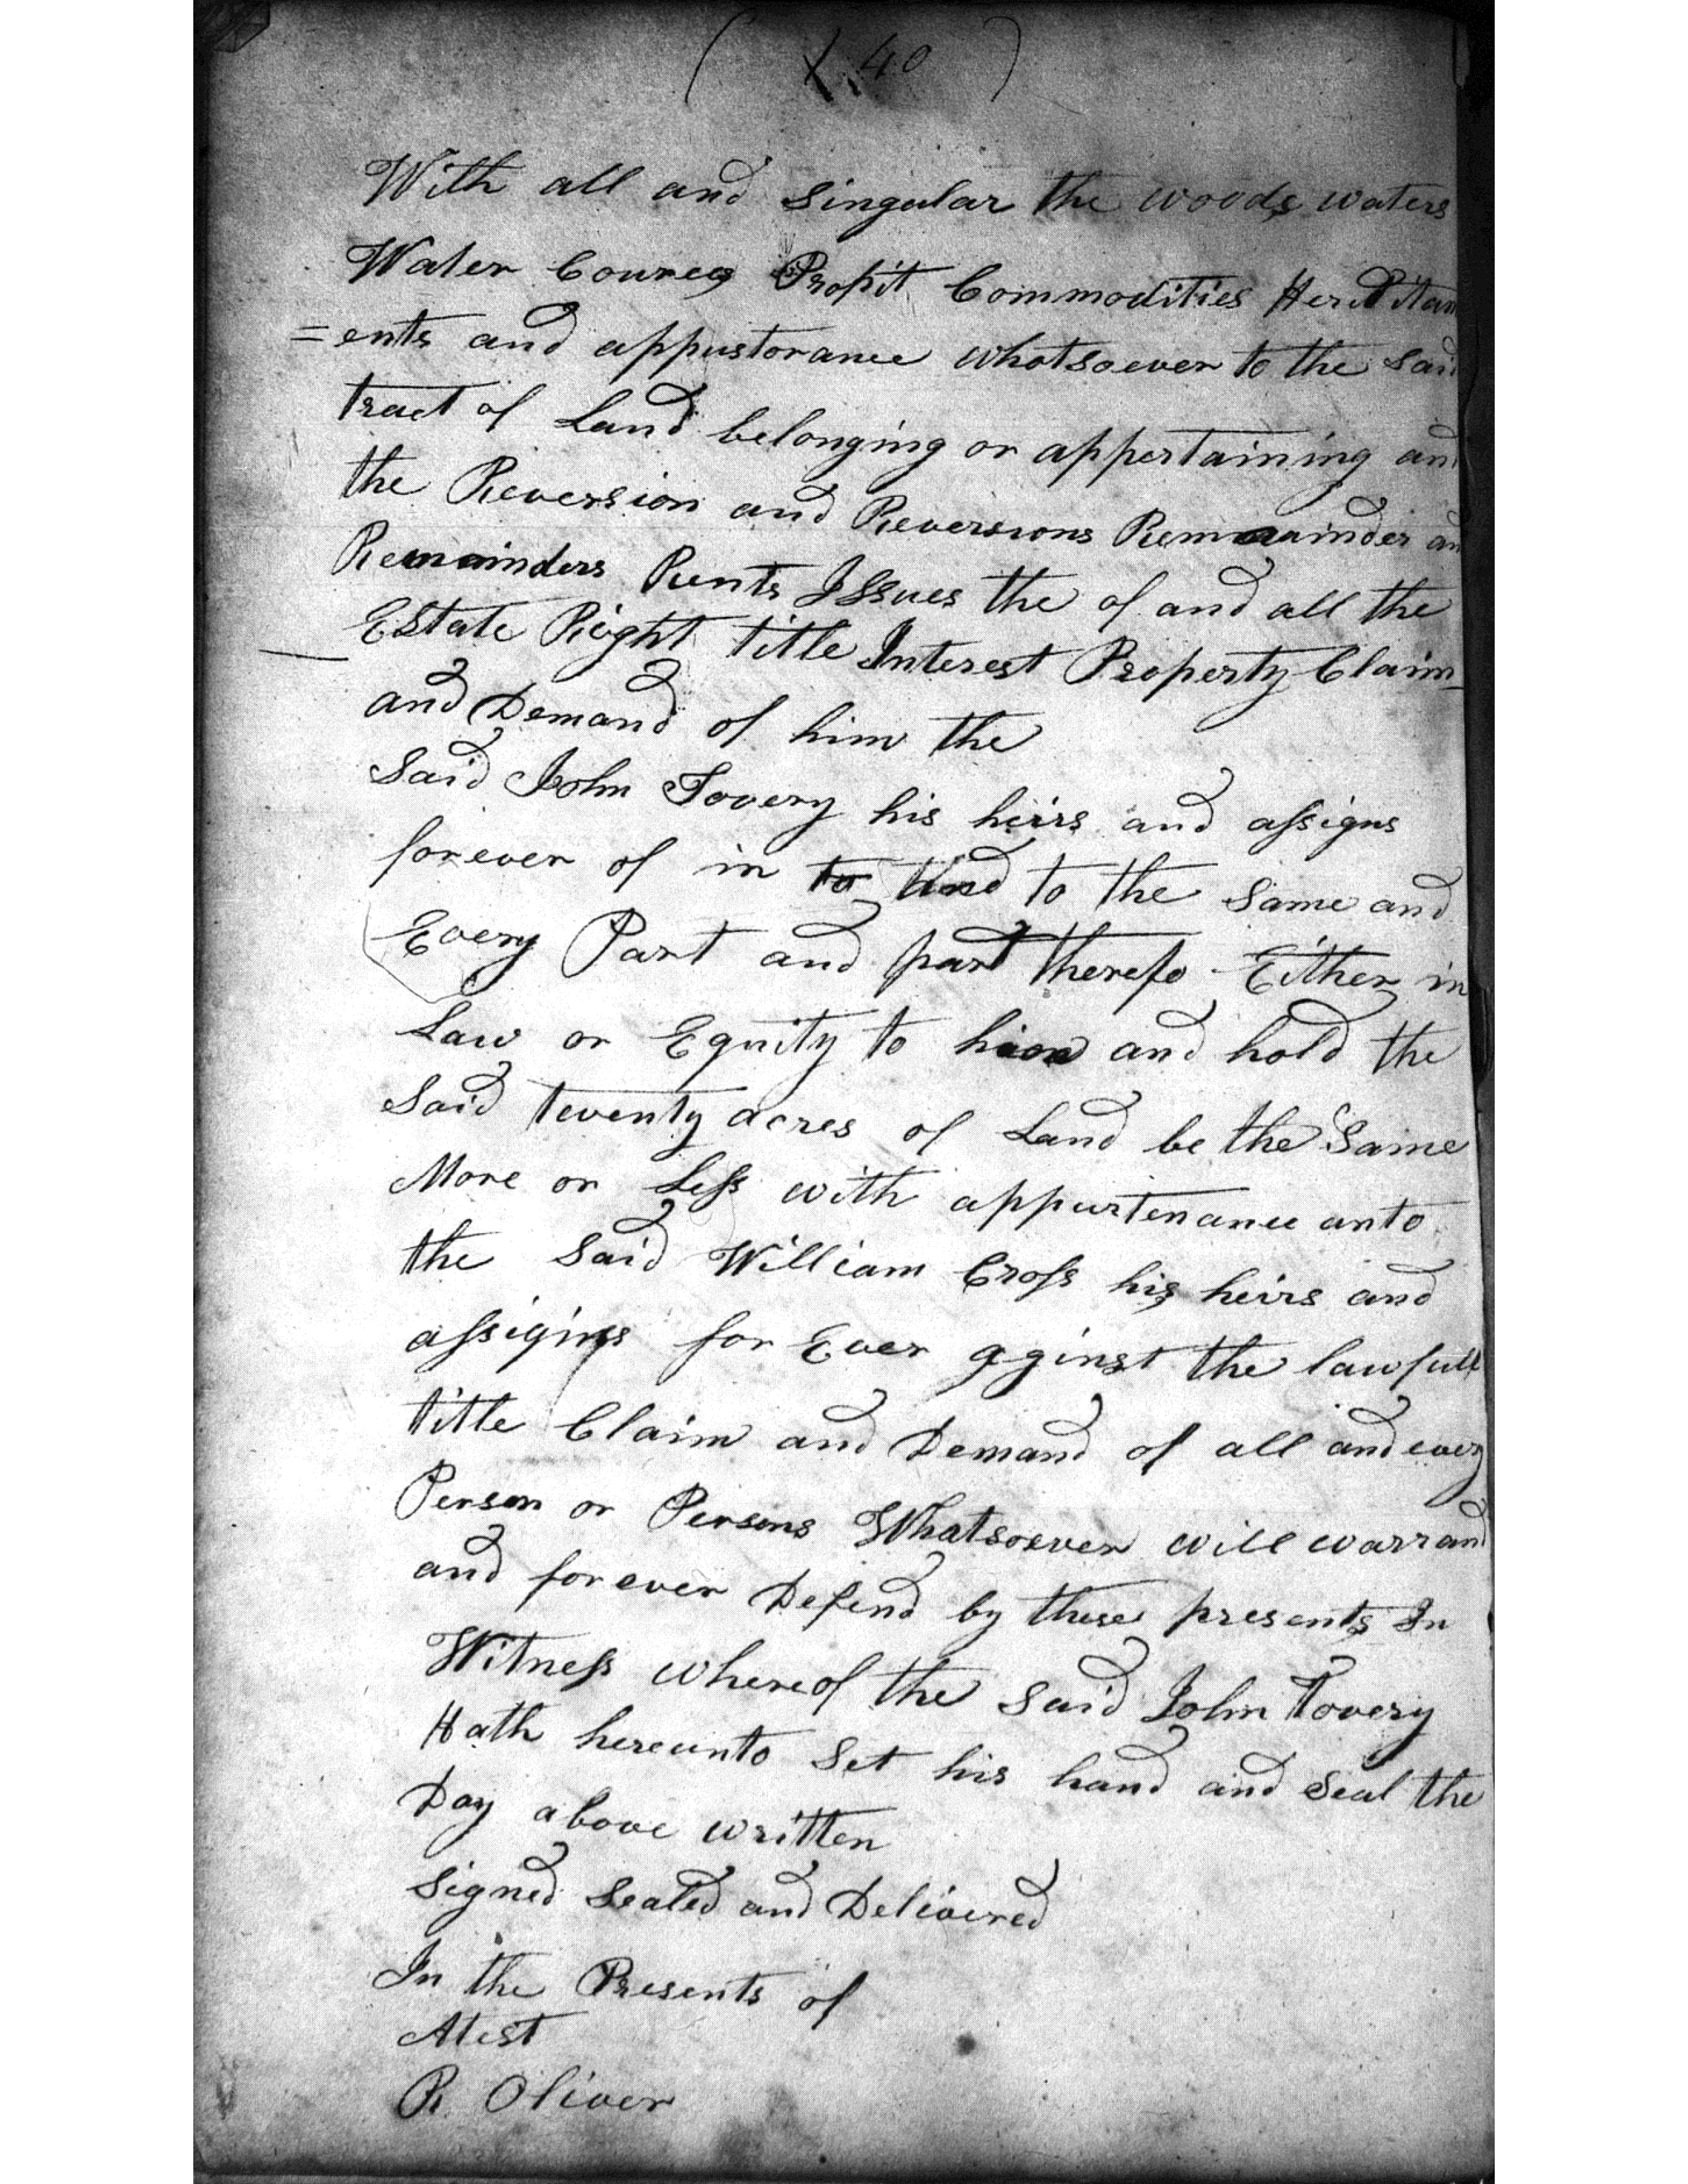 ( X 40 )
With all and Singular the woods waters
Water Courses Profit Commodities Hereditam
=ents and appustorance whotsoever to the Said
tract of Land belonging or appertaining and
the Reversion and Reversions Remainder and
Remainders Rents Issues the of and all the
Estate Right title Interest Property Claim
and Demand of him the
Said John Tovery his heirs and assigns
forever of in to to the Same and
Every Part and part therefo Either in
Law or Equity to and hold the
Said twenty acres of Land be the Same
More or Less with appurtenance unto
the Said William Cross his heirs and
assigns for Ever aginst the lawfull
title Claim and Demand of all and every
Person or Persons Whatsoever will warrand
and forever Defend by these presents In
Witness whereof the Said John Tovery
Hath hereunto Set his hand and Seal the
Day above written
Signed Sealed and Delivered
In the Presents of
Atest
R Oliver